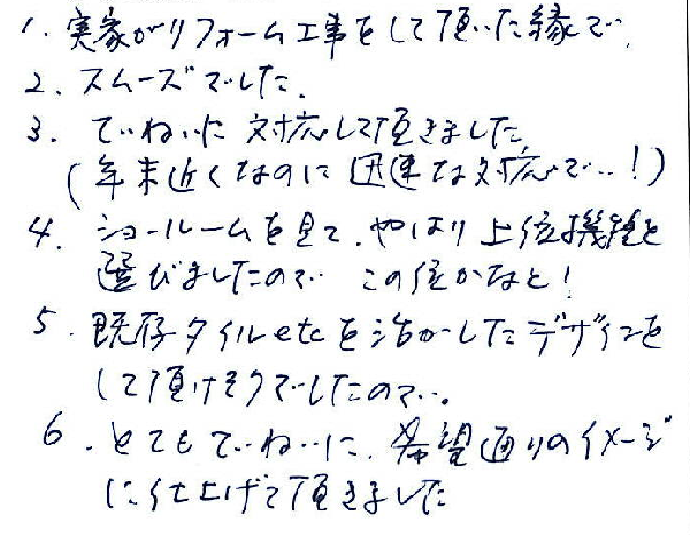 1. 実家がリフォーム工事をして頂いた縁で、
2. スムーズでした。
3. ていねいに対応して頂きました
(年末近くなのに迅速な対応で…!)
4. ショールームを見て、やはり上位機種を
選びましたので この位かなと!
5. 既存タイルetcを活かしたデザインを
して頂けそうでしたので…
6. とてもていねいに、希望通りのイメージ
に仕上げて頂きました